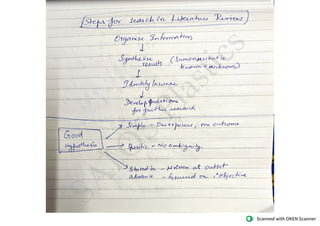 Steps for search in Literature Review
Organise Information
Synthesise results (Summarise what is known & unknown)
Identify lacunae
Develop questions
for further research
Good
hypothesis
Simple - One exposure, one outcome
Specific - No ambiguity
Stated in advance - Written at outset
- focused on objective
Scanned with OKEN Scanner